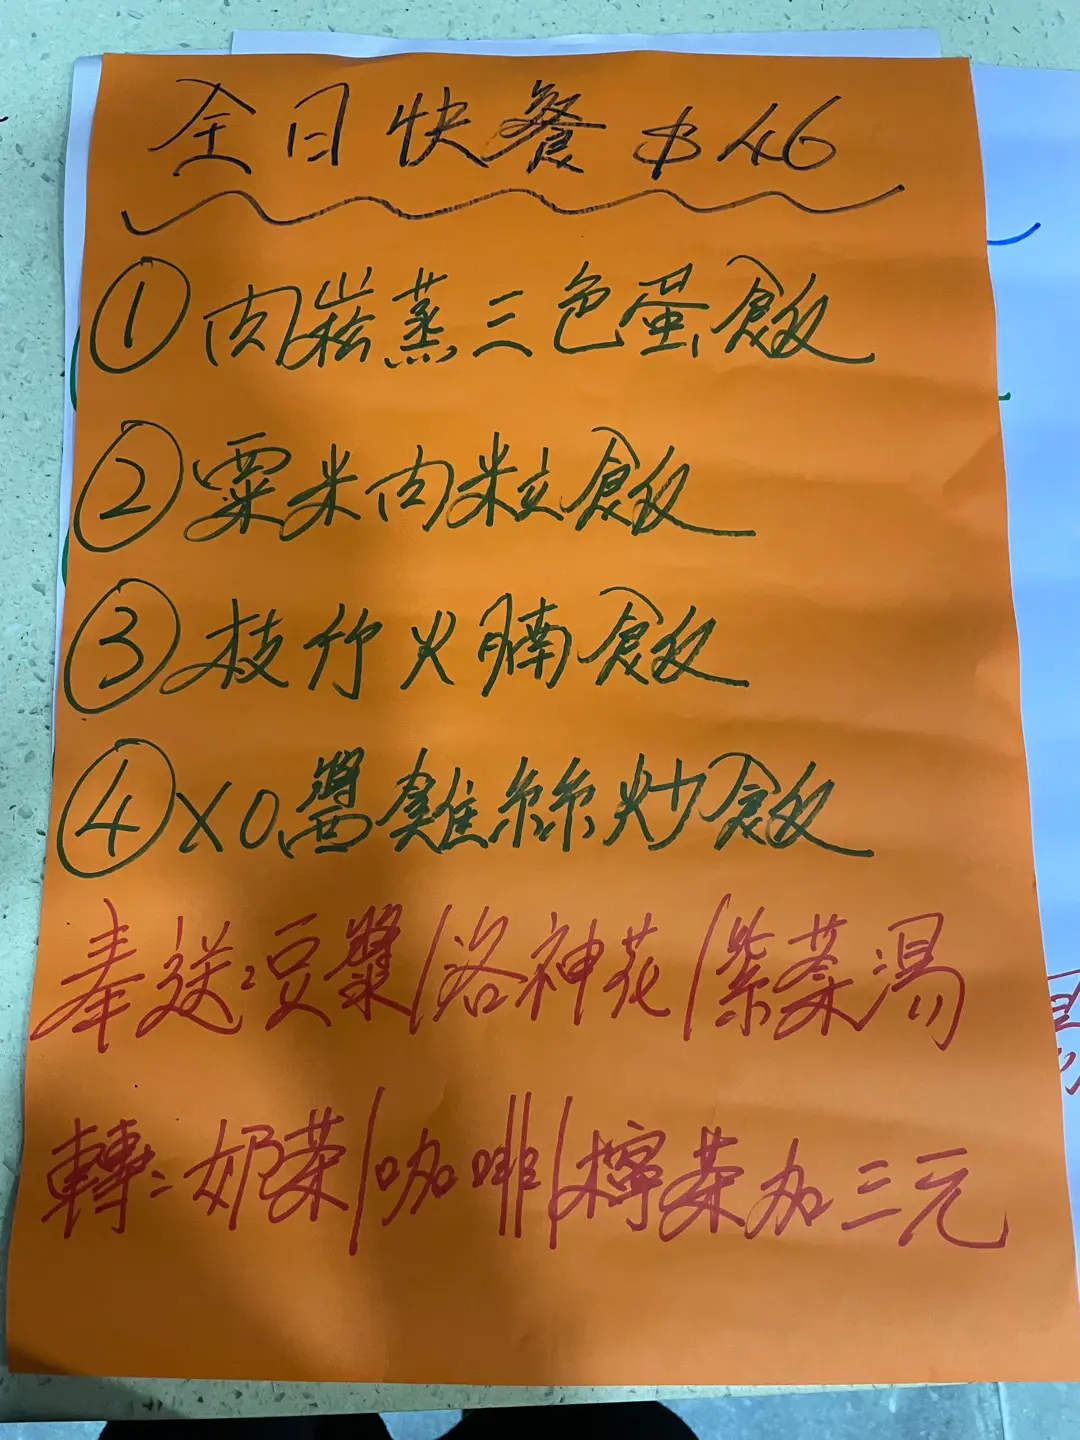 全日快餐 $46
① 肉崧蒸三色蛋飯
② 粟米肉粒飯
③ 枝竹火腩飯
④ XO醬雞絲炒飯
奉送:豆漿/洛神花/紫菜湯
轉:奶茶/咖啡/檸茶加三元